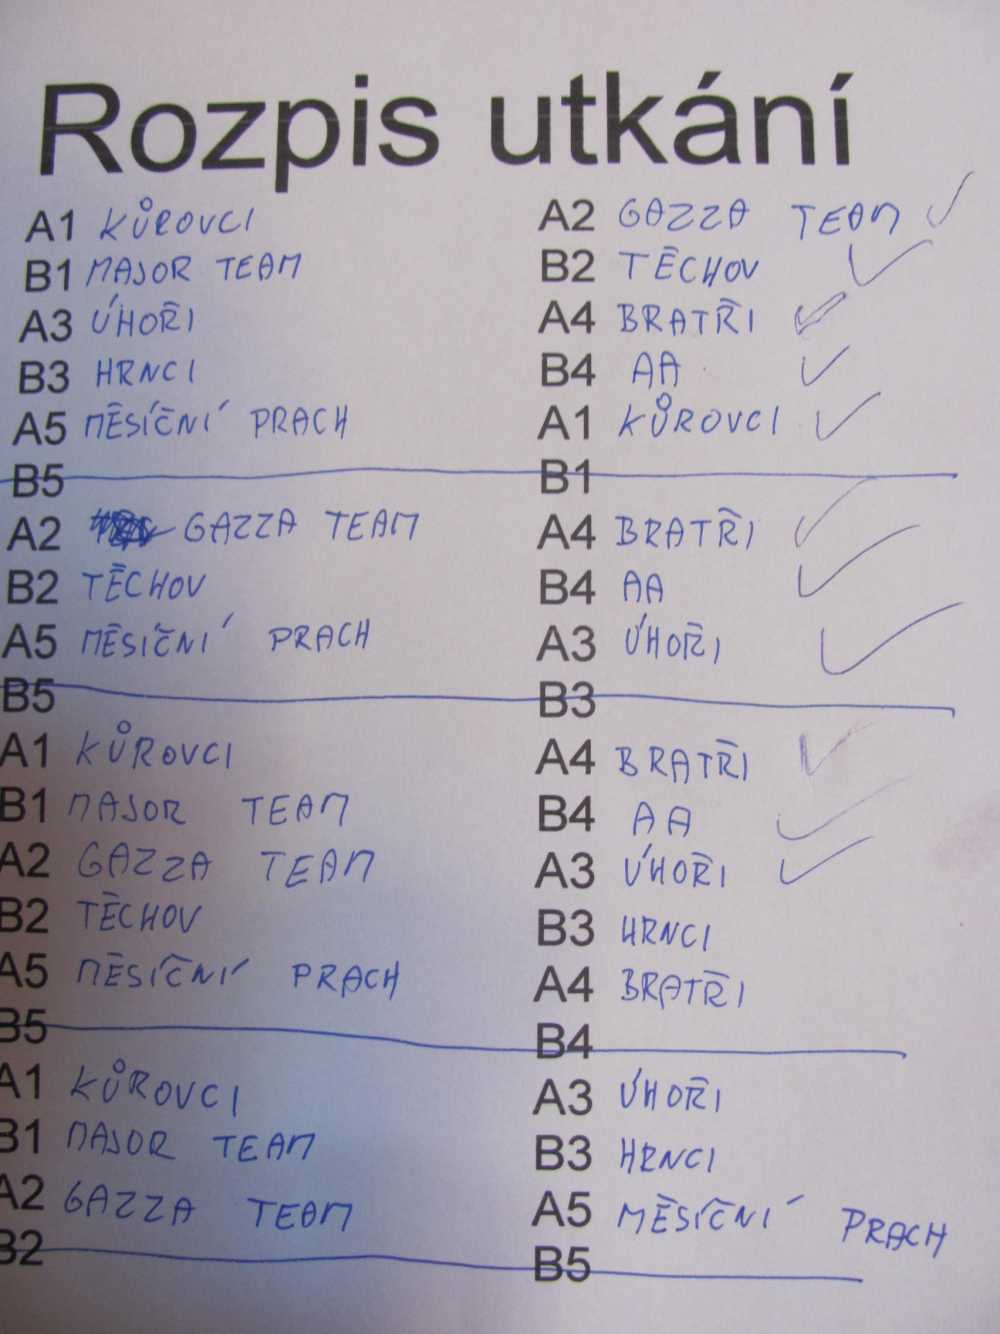 Rozpis utkání
A1 KŮROVCI A2 GAZZA TEAM
B1 MAJOR TEAM B2 TĚCHOV
A3 ÚHOŘI A4 BRATŘI
B3 HRNCI B4 AA
A5 MĚSÍČNÍ PRACH A1 KŮROVCI
B5 B1
A2 GAZZA TEAM A4 BRATŘI
B2 TĚCHOV B4 AA
A5 MĚSÍČNÍ PRACH A3 ÚHOŘI
B5 B3
A1 KŮROVCI A4 BRATŘI
B1 MAJOR TEAM B4 AA
A2 GAZZA TEAM A3 ÚHOŘI
B2 TĚCHOV B3 HRNCI
A5 MĚSÍČNÍ PRACH A4 BRATŘI
B5 B4
A1 KŮROVCI A3 ÚHOŘI
B1 MAJOR TEAM B3 HRNCI
A2 GAZZA TEAM A5 MĚSÍČNÍ PRACH
B2 B5